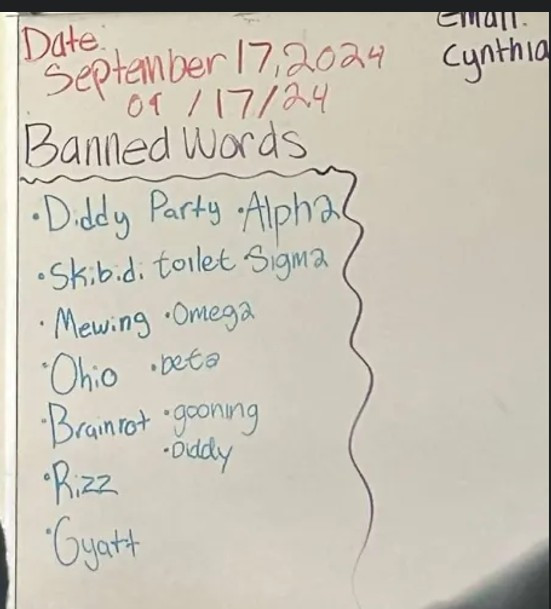 Date:
September 17, 2024
09/17/24
Email:
Cynthia
Banned Words
•Diddy Party •Alpha
•Skibidi toilet Sigma
•Mewing •Omega
•Ohio •beta
•Brainrot •gooning
•Diddy
•Rizz
•Gyatt